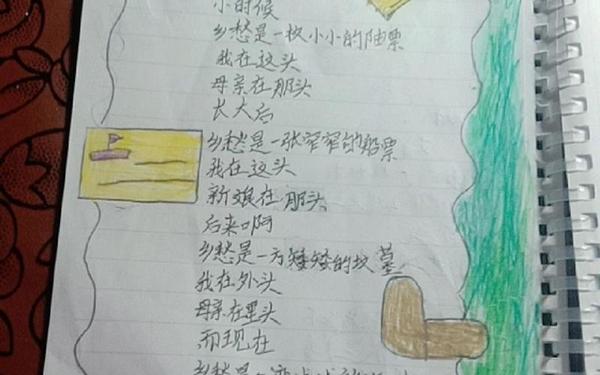 小的候
乡愁是一枚小小的邮票
我在这头
母亲在那头
长大后
乡愁是一张窄窄的船票
我在这头
新娘在那头
后来啊
乡愁是一方矮矮的坟墓
我在外头
母亲在里头
而现在
乡愁是